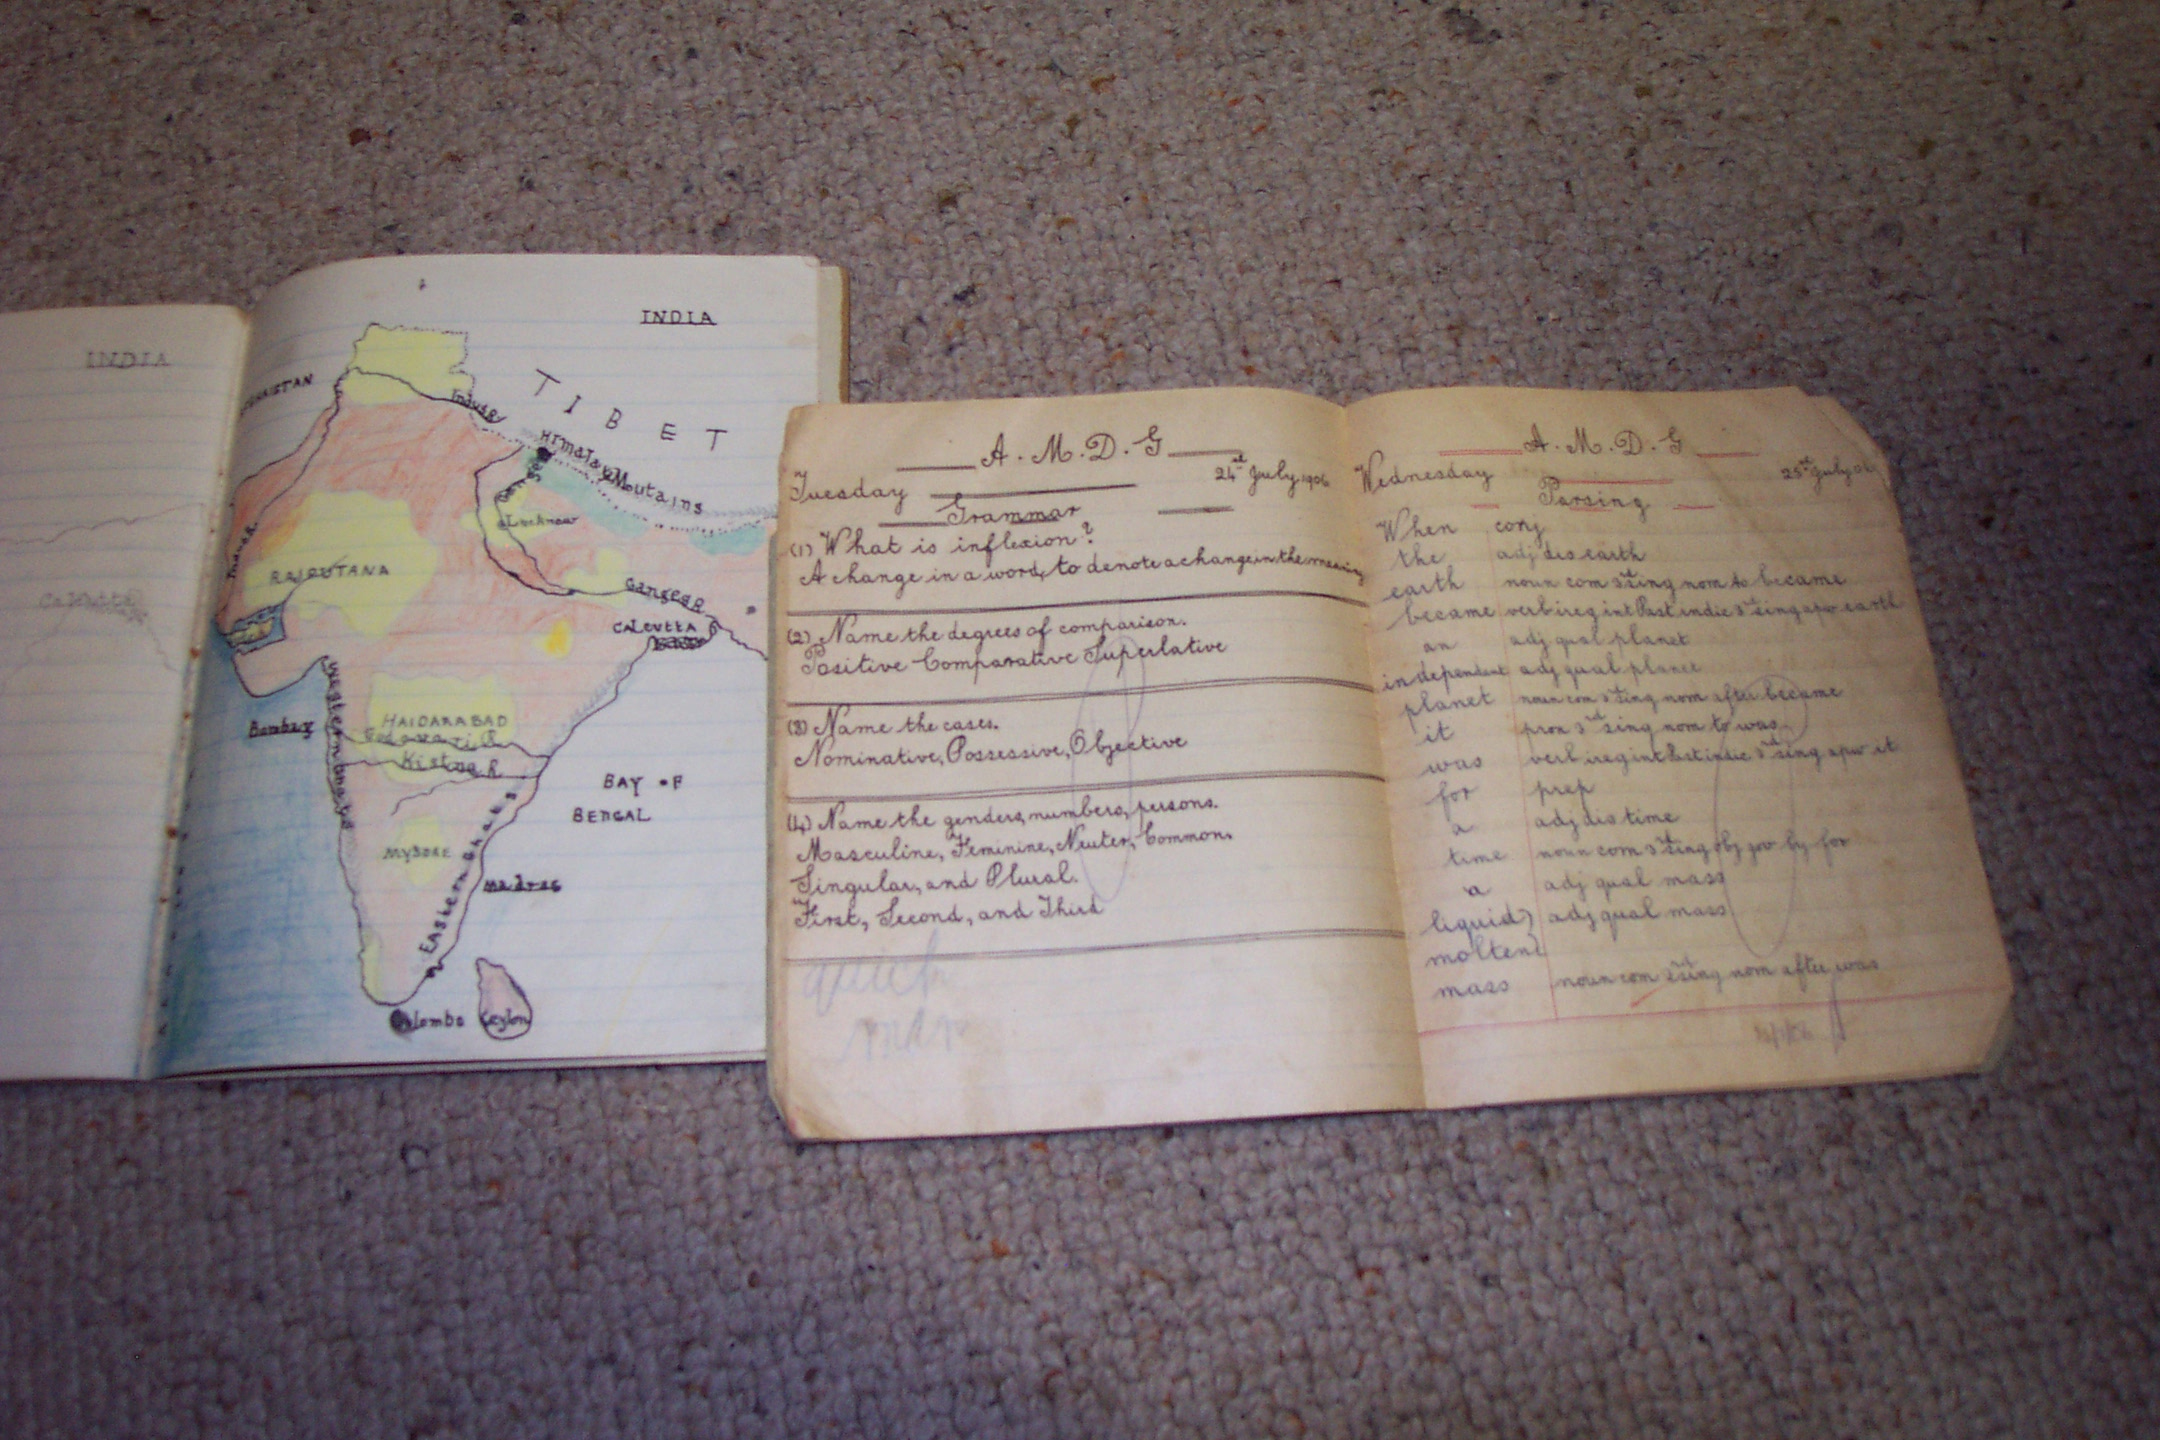 INDIA
INDIA
TIBET
Indus R
Himalaya Moutains
Lucknow
RAJPUTANA
Ganges R
CALCUTTA
Calcutta
HAIDARABAD
Godavari R
Kistna R
Bombay
Western Ghats
BAY OF
BENGAL
MYSORE
Eastern Ghats
Madras
Colombo Ceylon
A. M. D. G
Tuesday 24th July 1906
Grammar
(1) What is inflexion?
A change in a word, to denote a change in the meaning
(2) Name the degrees of comparison.
Positive Comparative Superlative
(3) Name the cases.
Nominative, Possessive, Objective
(4) Name the genders, numbers, persons.
Masculine, Feminine, Neuter, Common.
Singular, and Plural.
First, Second, and Third
A. M. D. G
Wednesday 25th July 06
Parsing
When conj
the adj dis earth
earth noun com 3rd sing nom to became
became verb ireg int Past indic 3rd sing agr earth
an adj qual planet
independent adj qual planet
planet noun com 3rd sing nom after became
it pron 3rd sing nom to was
was verb ireg int Past indic 3rd sing agr it
for prep
a adj dis time
time noun com 3rd sing obj gov by for
a adj qual mass
liquid adj qual mass
molten
mass noun com 3rd sing nom after was